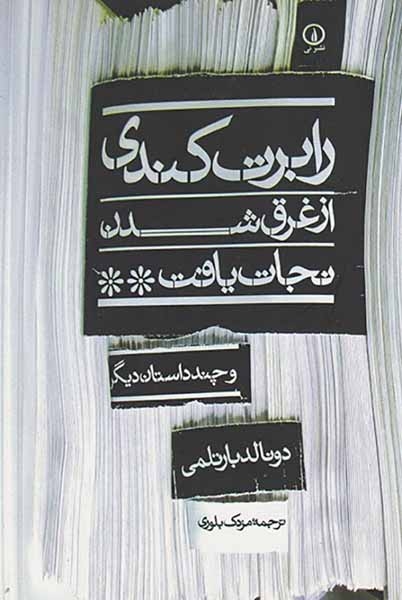 نشر نی
رابرت کندی
از غرق شدن
نجات یافت **
و چند داستان دیگر
دونالد بارتلمی
ترجمه: مزدک بلوری